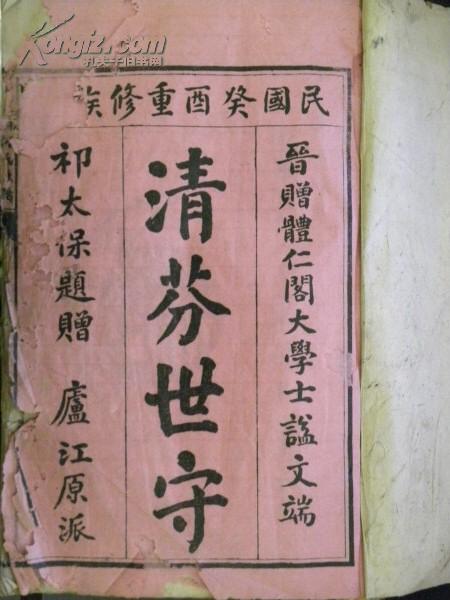 Kongfz.com
孔夫子旧书网
民國癸酉重修族
晉贈體仁閣大學士諡文端
清芬世守
祁太保題贈 廬江原派